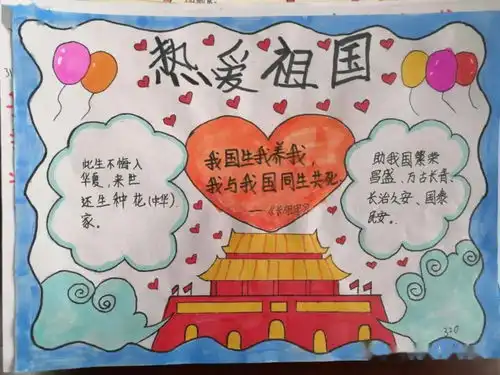 热爱祖国
此生不悔入
华夏,来世
还生种花(中华)
家。
我国生我养我,
我与我国同生共死。
助我国繁荣
昌盛、万古长青、
长治久安、国泰
民安。
220